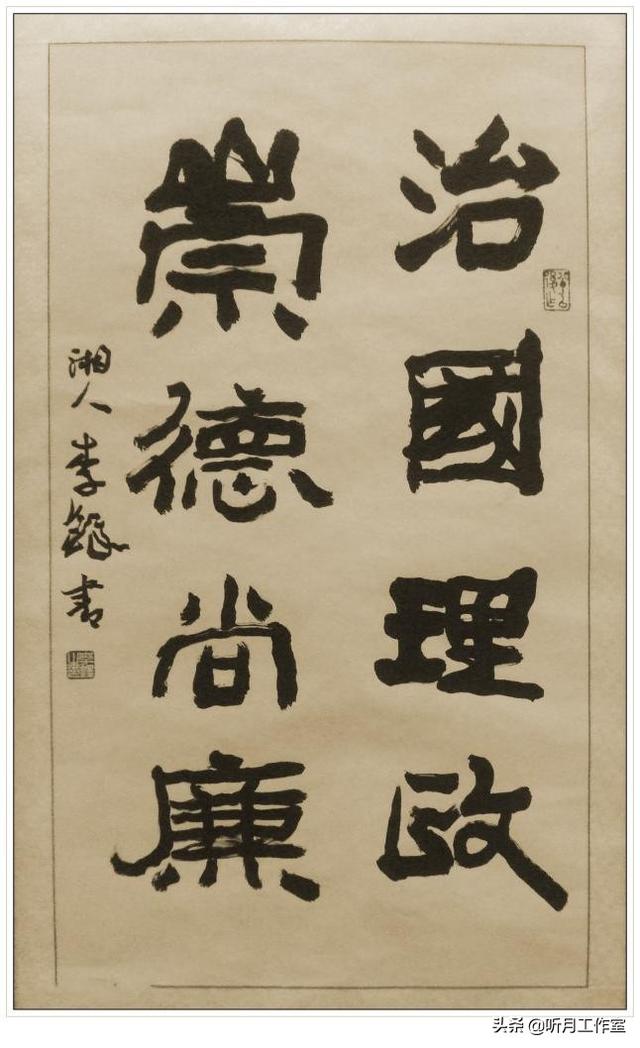 治國理政
崇德尚廉
湘人李鐸書
头条 @听月工作室